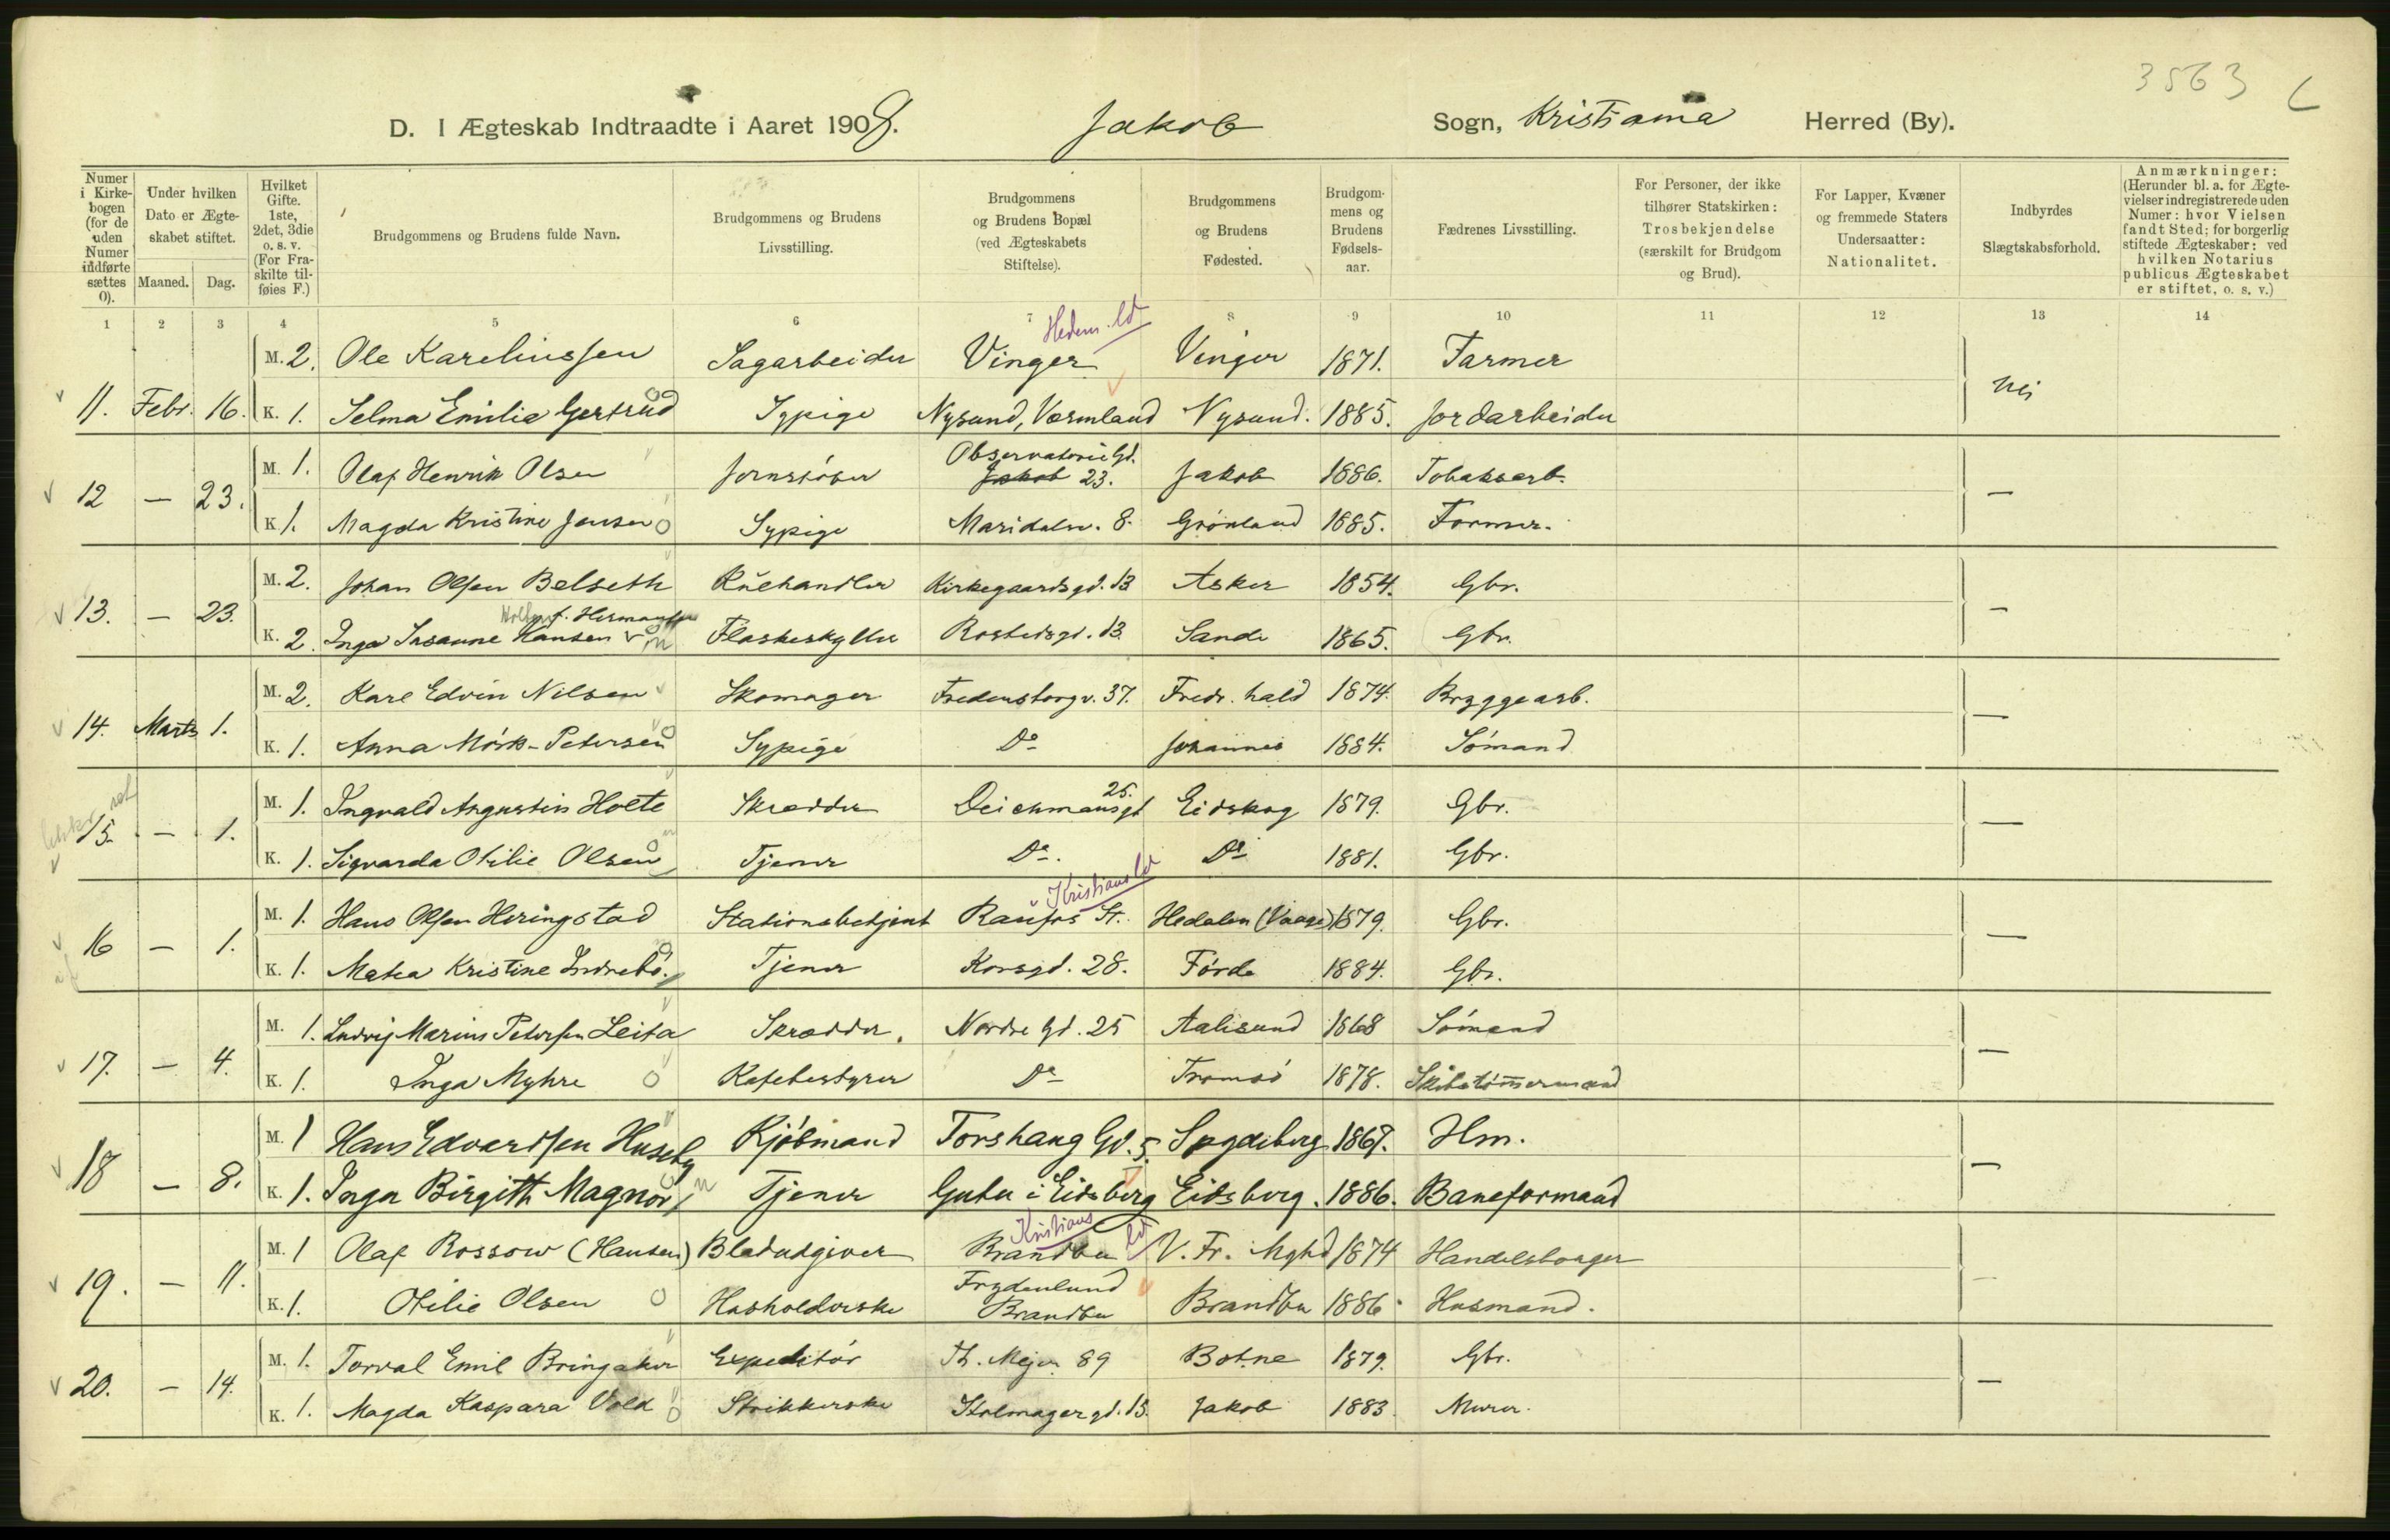 3563
D. I Ægteskab Indtraadte i Aaret 1909. Jakob Sogn, Kristiania Herred (By).
Numer i Kirkebogen (for de uden Numer indførte sættes 0). Under hvilken Dato er Ægteskabet stiftet. Maaned. Dag. Hvilket Gifte. 1ste, 2det, 3die o. s. v. (For Fraskilte tilføies F.) Brudgommens og Brudens fulde Navn. Brudgommens og Brudens Livsstilling. Brudgommens og Brudens Bopæl (ved Ægteskabets Stiftelse). Brudgommens og Brudens Fødested. Brudgommens og Brudens Fødselsaar. Fædrenes Livsstilling. For Personer, der ikke tilhører Statskirken: Trosbekjendelse (særskilt for Brudgom og Brud). For Lapper, Kvæner og fremmede Staters Undersaatter: Nationalitet. Indbyrdes Slægtskabsforhold. Anmærkninger: (Herunder bl. a. for Ægtevielser indregistrerede uden Numer: hvor Vielsen fandt Sted; for borgerlig stiftede Ægteskaber: ved hvilken Notarius publicus Ægteskabet er stiftet, o. s. v.)
1 2 3 4 5 6 7 8 9 10 11 12 13 14
Hedem. ld
M. 2. Ole Karelinssen Sagarbeider Vinger Vinger 1871. Farmer
11. Febr. 16. K. 1. Selma Emilie Gertrud Sypige Nysund, Værmland Nysund. 1885. Jordarbeider Nei
M. 1. Olaf Henrik Olsen Jernstøber Observatorie Gd. Jakob 23. Jakob 1886. Tobaksarb.
12 — 23. K 1. Magda Kristine Jensen Sypige Maridalsv. 8. Grønland 1885. Former. —
M. 2. Johan Olsen Belseth Kulhandler Kirkegaardsgd. 13 Asker 1854. Gbr.
13. — 23. K. 2. Inga Susanne Hansen f. Hermansen Flaskeskyller Rostedsgd. 13 Sande 1865. Gbr. —
M. 2. Karl Edvin Nilsen Skomager Fredensborgv. 37. Fredr. hald 1874. Bryggearb.
14. Marts 1. K. 1. Anna Mørk-Petersen Sypige Do Johannes 1884. Sømand —
M. 1. Ingvald Augustin Holte Skrædder Deichmansgt 25. Eidskog 1879. Gbr.
15. — 1. K. 1. Sigvarda Otilie Olsen Tjener Do. Do 1881. Gbr. —
Kristians ld
M. 1. Hans Olsen Heringstad Stationsbetjent Raufos St. Hedalen (Vaage) 1879. Gbr.
16 — 1. K. 1. Matea Kristine Indrebø. Tjener Korsgd. 28. Førde 1884. Gbr. —
M. 1. Ludvig Marius Petersen Leita Skrædder. Nordre Gd. 25 Aalesund 1868 Sømand
17. — 4. K. 1. Inga Myhre Kafebestyrer Do Tromsø 1878. Skibstømmermand —
M. 1 Hans Edvardsen Huseby Kjøbmand Torshaug Gd. 5. Spydeberg 1867. Hm.
18 — 8. K. 1. Inga Birgith Magnor Tjener Gutu i Eidsberg Eidsberg. 1886. Baneformand —
Kristians ld
M. 1 Olaf Rossow (Hansen) Bladudgiver Brandbu V. Fr. Mghd 1874 Handelsborger
19. — 11. K. 1. Otilie Olsen Husholderske Frydenlund Brandbu Brandbu 1886. Husmand. —
M. 1. Torval Emil Bringaker Expeditør Th. Mejer. 89 Botne 1879. Gbr.
20. — 14. K. 1. Magda Kaspara Vold Strikkerske Stolmagergd. 15. Jakob 1883. Murer. —